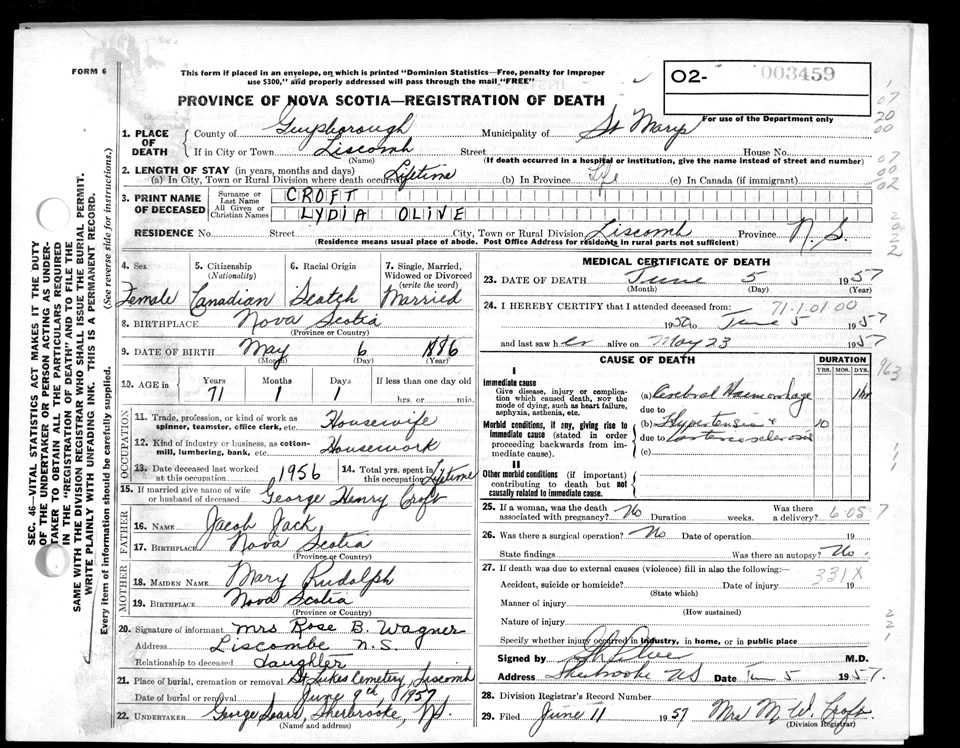 FORM 6
This form if placed in an envelope, on which is printed "Dominion Statistics—Free, penalty for Improper
use $300," and properly addressed will pass through the mail "FREE"
O2- 003459
For use of the Department only
PROVINCE OF NOVA SCOTIA—REGISTRATION OF DEATH
1. PLACE OF DEATH County of Guysborough Municipality of St Marys
If in City or Town Liscomb Street House No.
(Name) (If death occurred in a hospital or institution, give the name instead of street and number)
2. LENGTH OF STAY (in years, months and days)
(a) In City, Town or Rural Division where death occurred Lifetime (b) In Province Life (c) In Canada (if immigrant)
3. PRINT NAME OF DECEASED Surname or Last Name CROFT
All Given or Christian Names LYDIA OLIVE
RESIDENCE No. Street City, Town or Rural Division Liscomb Province N.S.
(Residence means usual place of abode. Post Office Address for residents in rural parts not sufficient)
4. Sex Female
5. Citizenship (Nationality) Canadian
6. Racial Origin Scotch
7. Single, Married, Widowed or Divorced (write the word) Married
8. BIRTHPLACE Nova Scotia
(Province or Country)
9. DATE OF BIRTH May 6 1886
(Month) (Day) (Year)
10. AGE in Years 71 Months 1 Days 1 If less than one day old
hrs. or min.
OCCUPATION
11. Trade, profession, or kind of work as spinner, teamster, office clerk, etc. Housewife
12. Kind of industry or business, as cotton-mill, lumbering, bank, etc. Housework
13. Date deceased last worked at this occupation 1956 14. Total yrs. spent in this occupation Lifetime
15. If married give name of wife or husband of deceased George Henry Croft
FATHER
16. NAME Jacob Jack
17. BIRTHPLACE Nova Scotia
(Province or Country)
MOTHER
18. MAIDEN NAME Mary Rudolph
19. BIRTHPLACE Nova Scotia
(Province or Country)
20. Signature of informant Mrs Rose B. Wagner
Address Liscombe N.S.
Relationship to deceased daughter
21. Place of burial, cremation or removal St Lukes Cemetery, Liscomb
Date of burial or removal June 9th 1957
22. UNDERTAKER George Sears, Sherbrooke, N.S.
(Name and address)
MEDICAL CERTIFICATE OF DEATH
23. DATE OF DEATH June 5 1957
(Month) (Day) (Year)
24. I HEREBY CERTIFY that I attended deceased from: 71-1.01.00
1950 to June 5 1957
and last saw her alive on May 23 1957
CAUSE OF DEATH
DURATION
YRS. MOS. DYS.
963
I
Immediate cause
Give disease, injury or complication which caused death, not the mode of dying, such as heart failure, asphyxia, asthenia, etc.
(a) Cerebral Haemorrhage 1 hr
due to
Morbid conditions, if any, giving rise to immediate cause (stated in order proceeding backwards from immediate cause).
(b) Hypertension + 10
due to arteriosclerosis
(c)
II
Other morbid conditions (if important) contributing to death but not causally related to immediate cause.
25. If a woman, was the death associated with pregnancy? No Duration weeks. Was there a delivery?
26. Was there a surgical operation? No Date of operation 19
State findings Was there an autopsy? No.
27. If death was due to external causes (violence) fill in also the following:— 331X
Accident, suicide or homicide? Date of injury 19
(State which)
Manner of injury
(How sustained)
Nature of injury
Specify whether injury occurred in Industry, in home, or in public place
Signed by M.D.
Address Sherbrooke NS Date June 5 1957.
28. Division Registrar's Record Number
29. Filed June 11 1957 Mrs M. W. Croft.
(Division Registrar)
SEC. 46—VITAL STATISTICS ACT MAKES IT THE DUTY
OF THE UNDERTAKER OR PERSON ACTING AS UNDER-
TAKER TO OBTAIN ALL THE PARTICULARS REQUIRED
IN THE "REGISTRATION OF DEATH" AND TO FILE THE
SAME WITH THE DIVISION REGISTRAR WHO SHALL ISSUE THE BURIAL PERMIT.
WRITE PLAINLY WITH UNFADING INK. THIS IS A PERMANENT RECORD.
Every item of information should be carefully supplied. (See reverse side for instructions.)